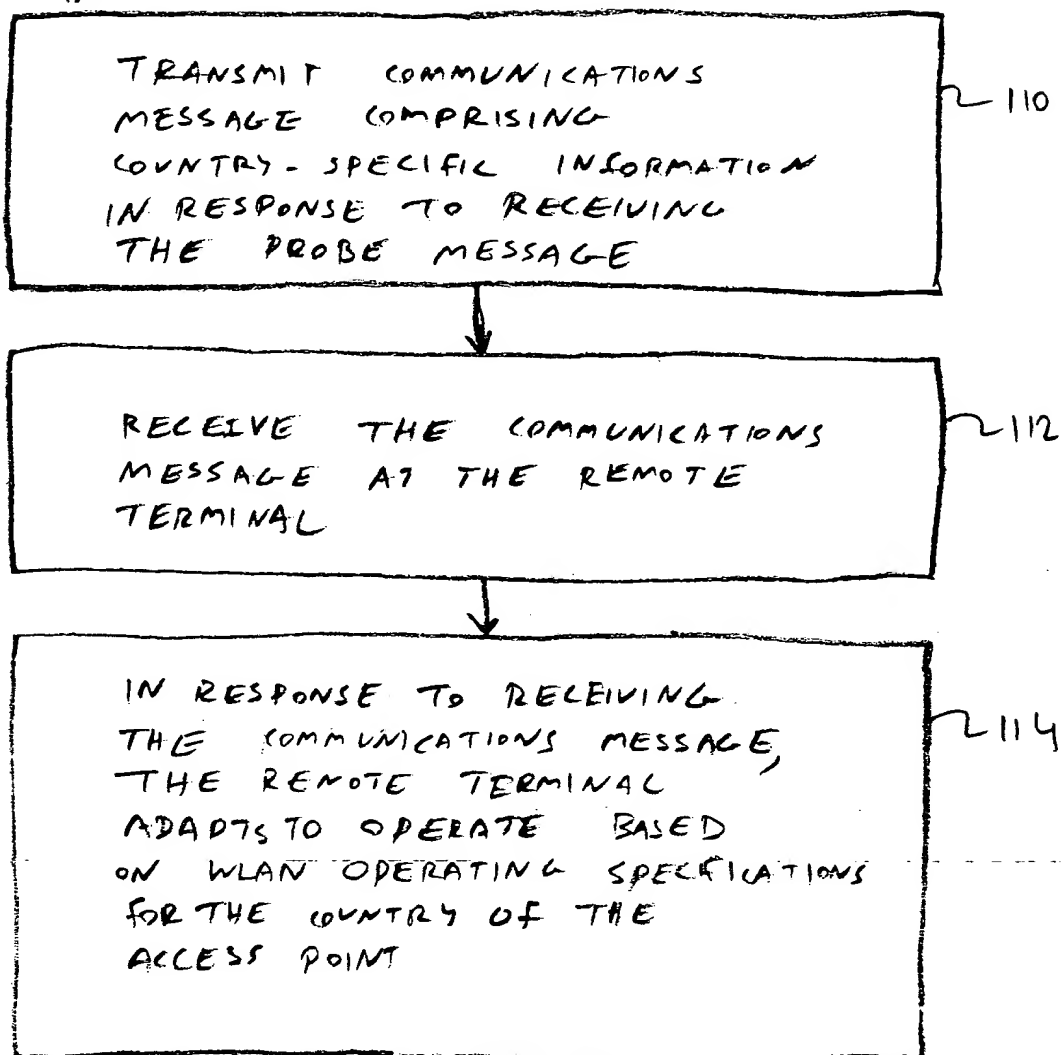 TRANSMIT COMMUNICATIONS
MESSAGE COMPRISING
COUNTRY-SPECIFIC INFORMATION
IN RESPONSE TO RECEIVING
THE PROBE MESSAGE
110
RECEIVE THE COMMUNICATIONS
MESSAGE AT THE REMOTE
TERMINAL
112
IN RESPONSE TO RECEIVING
THE COMMUNICATIONS MESSAGE,
THE REMOTE TERMINAL
ADAPTS TO OPERATE BASED
ON WLAN OPERATING SPECIFICATIONS
FOR THE COUNTRY OF THE
ACCESS POINT
114